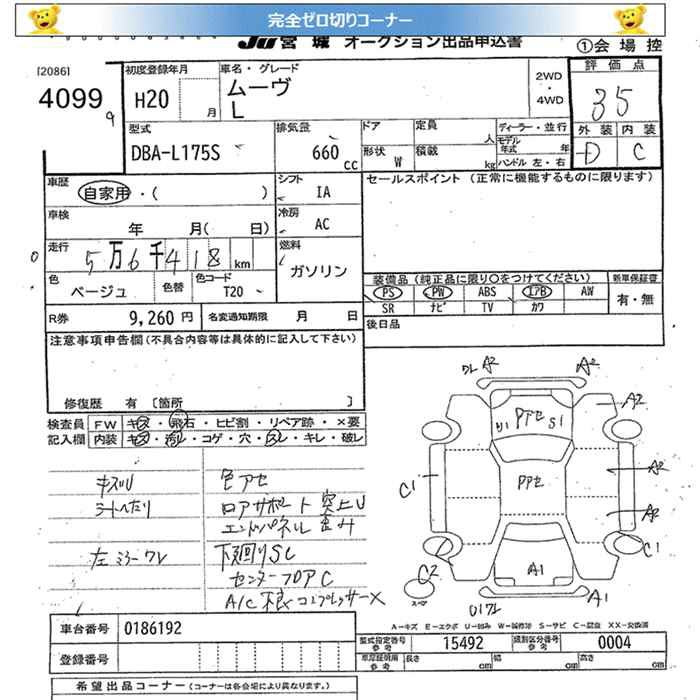 完全ゼロ切りコーナー
JU宮城 オークション出品申込書
①会場控
[2086]
4099
9
初度登録年月
H20 月
車名・グレード
ムーヴ
L
2WD
・
4WD
評価点
35
外装 内装
D C
型式
DBA-L175S
排気量
660 cc
ドア
形状 W
定員 人
積載 kg
ディーラー・並行
モデル年式 年
ハンドル 左・右
車歴
自家用・( )
シフト
IA
セールスポイント (正常に機能するものに限ります)
車検
年 月( 日)
冷房
AC
走行
5万6千418km
燃料
ガソリン
色
ベージュ
色替
色コード
T20
装備品(純正品に限り○をつけてください)
新車保証書
PS PW ABS エアB AW
SR ナビ TV カワ
有・無
R券 9,260円
名変通知期限 月 日
後日品
注意事項申告欄(不具合内容等は具体的に記入して下さい)
修復歴 有 [箇所 ]
検査員記入欄
FW キズ・飛石・ヒビ割・リペア跡・×要
内装 キズ・汚レ・コゲ・穴・スレ・キレ・破レ
キズU
シートヘたり
左ミラーワレ
色アセ
ロアサポート突上U
エンドパネル歪み
下廻りSC
センターフロアC
A/C不良コンプレッサーX
ワレ A2
A2
PアセS1
U1
A2
Pアセ
C1
A2
A2
C1
C2
スペア
A1
A1
U1ワレ
A-キズ E-エクボ U-凹み W-補修跡 S-サビ C-腐食 XX-交換済
車台番号 0186192
型式指定番号 参考 15492
類別区分番号 参考 0004
登録番号
車庫証明用 参考 長さ cm 幅 cm 高さ cm
希望出品コーナー(コーナーは各会場により異なります)